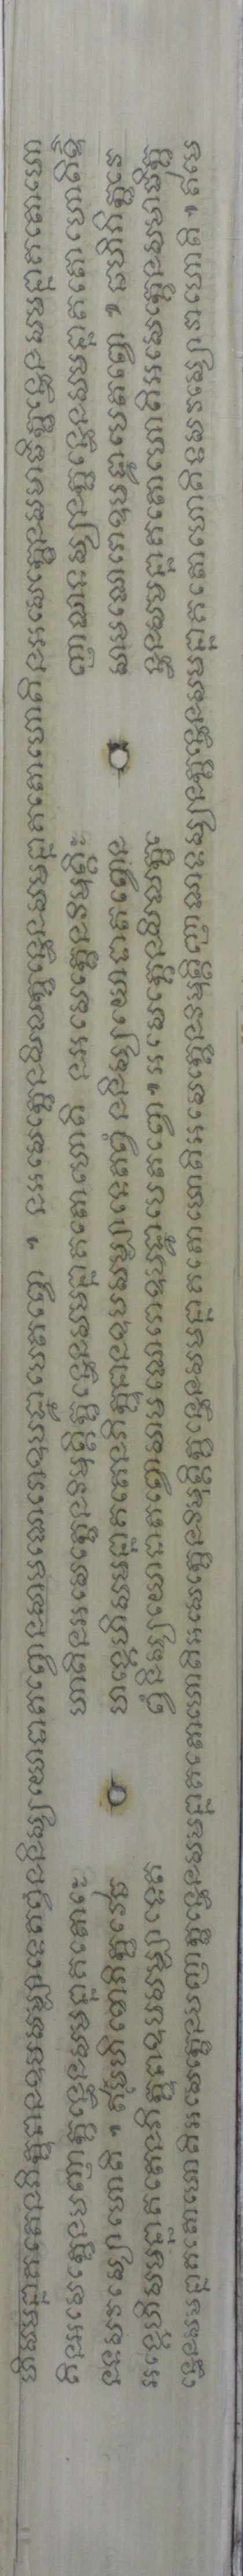 ហិសមន្នាគតេនភិក្ខុនានឧបសម្បាទេតព្វំននិស្សយោទាតព្វោនសាមណេរោឧបដ្ឋាបេតព្វោ ។ នអសេក្ខេនសីលក្ខន្ធេនសមន្នាគតោហោតិនអសេក្ខេនសមាធិក្ខន្ធេនសមន្នាគតោហោ
តិនអសេក្ខេនបញ្ញាក្ខន្ធេនសមន្នាគតោ ហោតិនអសេក្ខេនវិមុត្តិក្ខន្ធេនសមន្នាគតោហោតិ នអសេក្ខេនវិមុត្តិ ញាណទស្សនក្ខន្ធេនសមន្នាគតោហោតិឩ
នទសវស្សោហោតិ ។ ឥមេហិខោភិក្ខវេឆ ហង្គេហិសមន្នាគតេនភិក្ខុនានឧបសម្បាទេតព្វំ ននិស្សយោទាតព្វោន សាមណេរោឧបដ្ឋាបេតព្វោ ។ ឆហិភិក្ខវេ
អង្គេហិសមន្នាគតេនភិក្ខុនាឧបសម្បាទេត ព្វំនិស្សយោទាតព្វោសាមណេរោឧបដ្ឋាបេតព្វោ ។ អសេក្ខេនសីលក្ខ ន្ធេនសមន្នាគតោហោតិអសេក្ខេនសមាធិក្ខ
ន្ធេនសមន្នាគតោហោតិអសេក្ខេនបញ្ញាក្ខន្ធេនសមន្នាគតោហោតិអសេក្ខេនវិមុត្តិក្ខន្ធេនសមន្នាគតោហោតិអសេក្ខេនវិមុត្តិញាណទស្សនក្ខន្ធេនសមន្នាគតោហោតិទសវស្សោវាហោតិ ។ ឥមេ